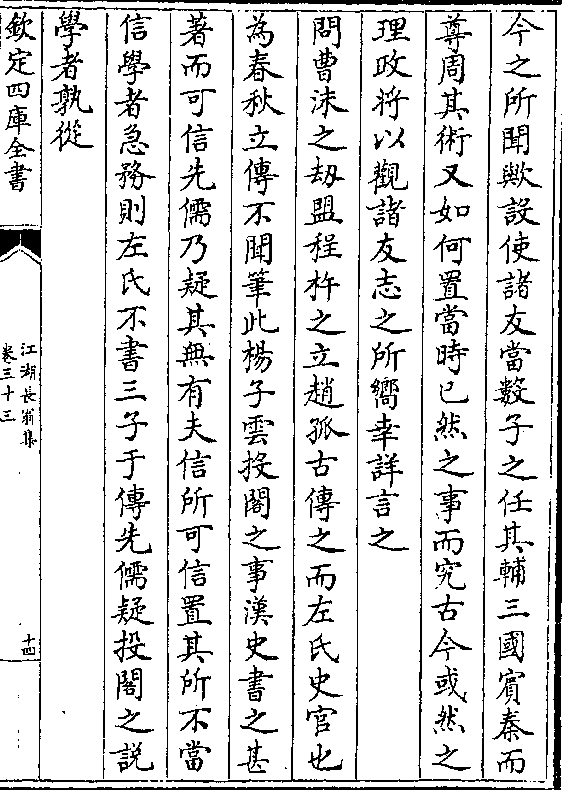 今之所聞歟設使諸友當數子之任其輔三國賓秦而
尊周其術又如何置當時已然之事而究古今或然之
理政將以觀諸友志之所嚮幸詳言之
問曹沬之刼盟程杵之立趙孤古傳之而左氏史官也
為春秋立傳不聞筆此楊子雲投閣之事漢史書之甚
著而可信先儒乃疑其無有夫信所可信置其所不當
信學者急務則左氏不書三子于傳先儒疑投閣之説
學者孰從
欽定四庫全書
江湖長翁集
卷三十三
十四